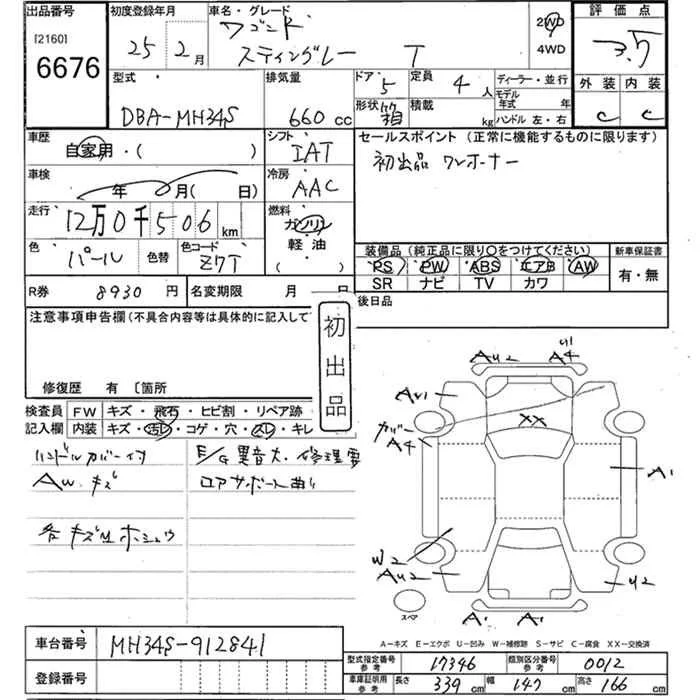 出品番号
[2160]
6676
初度登録年月
25年2月
車名・グレード
ワゴンR
スティングレー T
2WD
4WD
評価点
3.5
外装 内装
C C
型式
DBA-MH34S
排気量
660 cc
ドア 5
形状 箱
定員 4人
積載 kg
ディーラー・並行
モデル年式 年
ハンドル 左・右
車歴
自家用・( )
シフト
IAT
セールスポイント (正常に機能するものに限ります)
初出品 ワンオーナー
車検
年 月( 日)
冷房
AAC
走行
12万0千506 km
燃料
ガソリン
軽油
( )
色
パール
色替
色コード
Z7T
装備品 (純正品に限り○をつけてください)
PS PW ABS エアB AW
SR ナビ TV カワ
新車保証書
有・無
R券 8930円
名変期限 月 日
後日品
注意事項申告欄 (不具合内容等は具体的に記入して
初出品
修復歴 有 〔箇所
検査員記入欄
FW キズ・飛石・ヒビ割・リペア跡
内装 キズ・汚レ・コゲ・穴・スレ・キレ
ハンドルカバー付
AW キズ
各キズ凹ホシュウ
E/G異音大・修理要
コアサポート曲り
AU2
U1
A4
AU1
カバー
A4
XX
A1
W2
AU2
U2
A1
A1
スペア
A-キズ E-エクボ U-凹み W-補修跡 S-サビ C-腐食 XX-交換済
車台番号 MH34S-912841
登録番号
型式指定番号 参考 17346
類別区分番号 参考 0012
車庫証明用 参考 長さ 339cm 幅 147cm 高さ 166cm